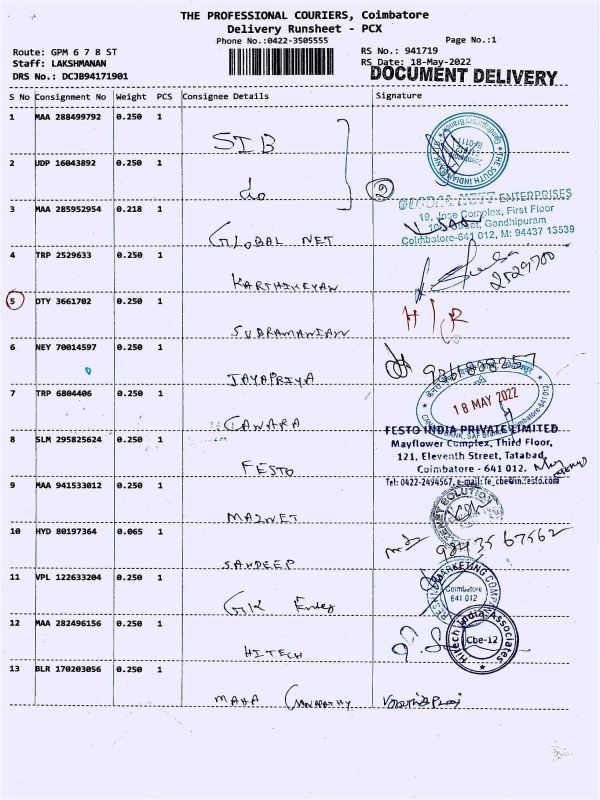 THE PROFESSIONAL COURIERS, Coimbatore
Delivery Runsheet - PCX
Phone No.:0422-3505555
Page No.:1
Route: GPM 6 7 8 ST
RS No.: 941719
Staff: LAKSHMANAN
RS Date: 18-May-2022
DRS No.: DCJB94171901
DOCUMENT DELIVERY
S No Consignment No Weight PCS Consignee Details Signature
1 MAA 288499792 0.250 1
SIB
THE SOUTH INDIAN BANK
2 UDP 16043892 0.250 1
do
2
3 MAA 285952954 0.218 1
GLOBAL NET
GLOBAL NETT ENTERPRISES
19, Jose Complex, First Floor
Street, Gandhipuram
Coimbatore-641 012, M: 94437 13539
4 TRP 2529633 0.250 1
KARTHIKEYAN
2529700
5 DTY 3661702 0.250 1
SUBRAMANIAN
6 NEY 70014597 0.250 1
JAYAPRIYA
7 TRP 6804406 0.250 1
CANARA
18 MAY 2022
8 SLM 295825624 0.250 1
FESTO
FESTO INDIA PRIVATE LIMITED
Mayflower Complex, Third Floor,
121, Eleventh Street, Tatabad,
Coimbatore - 641 012.
Tel: 0422-2494567, e-mail: fe_cbe@in.festo.com
9 MAA 941533012 0.250 1
10 HYD 80197364 0.065 1
SANDEEP
98435 67562
11 VPL 122633204 0.250 1
GK
MARKETING COMP
Coimbatore
641 012
12 MAA 282496156 0.250 1
HITECH
Hitech India Associates
Cbe-12
13 BLR 170203056 0.250 1
MAHA